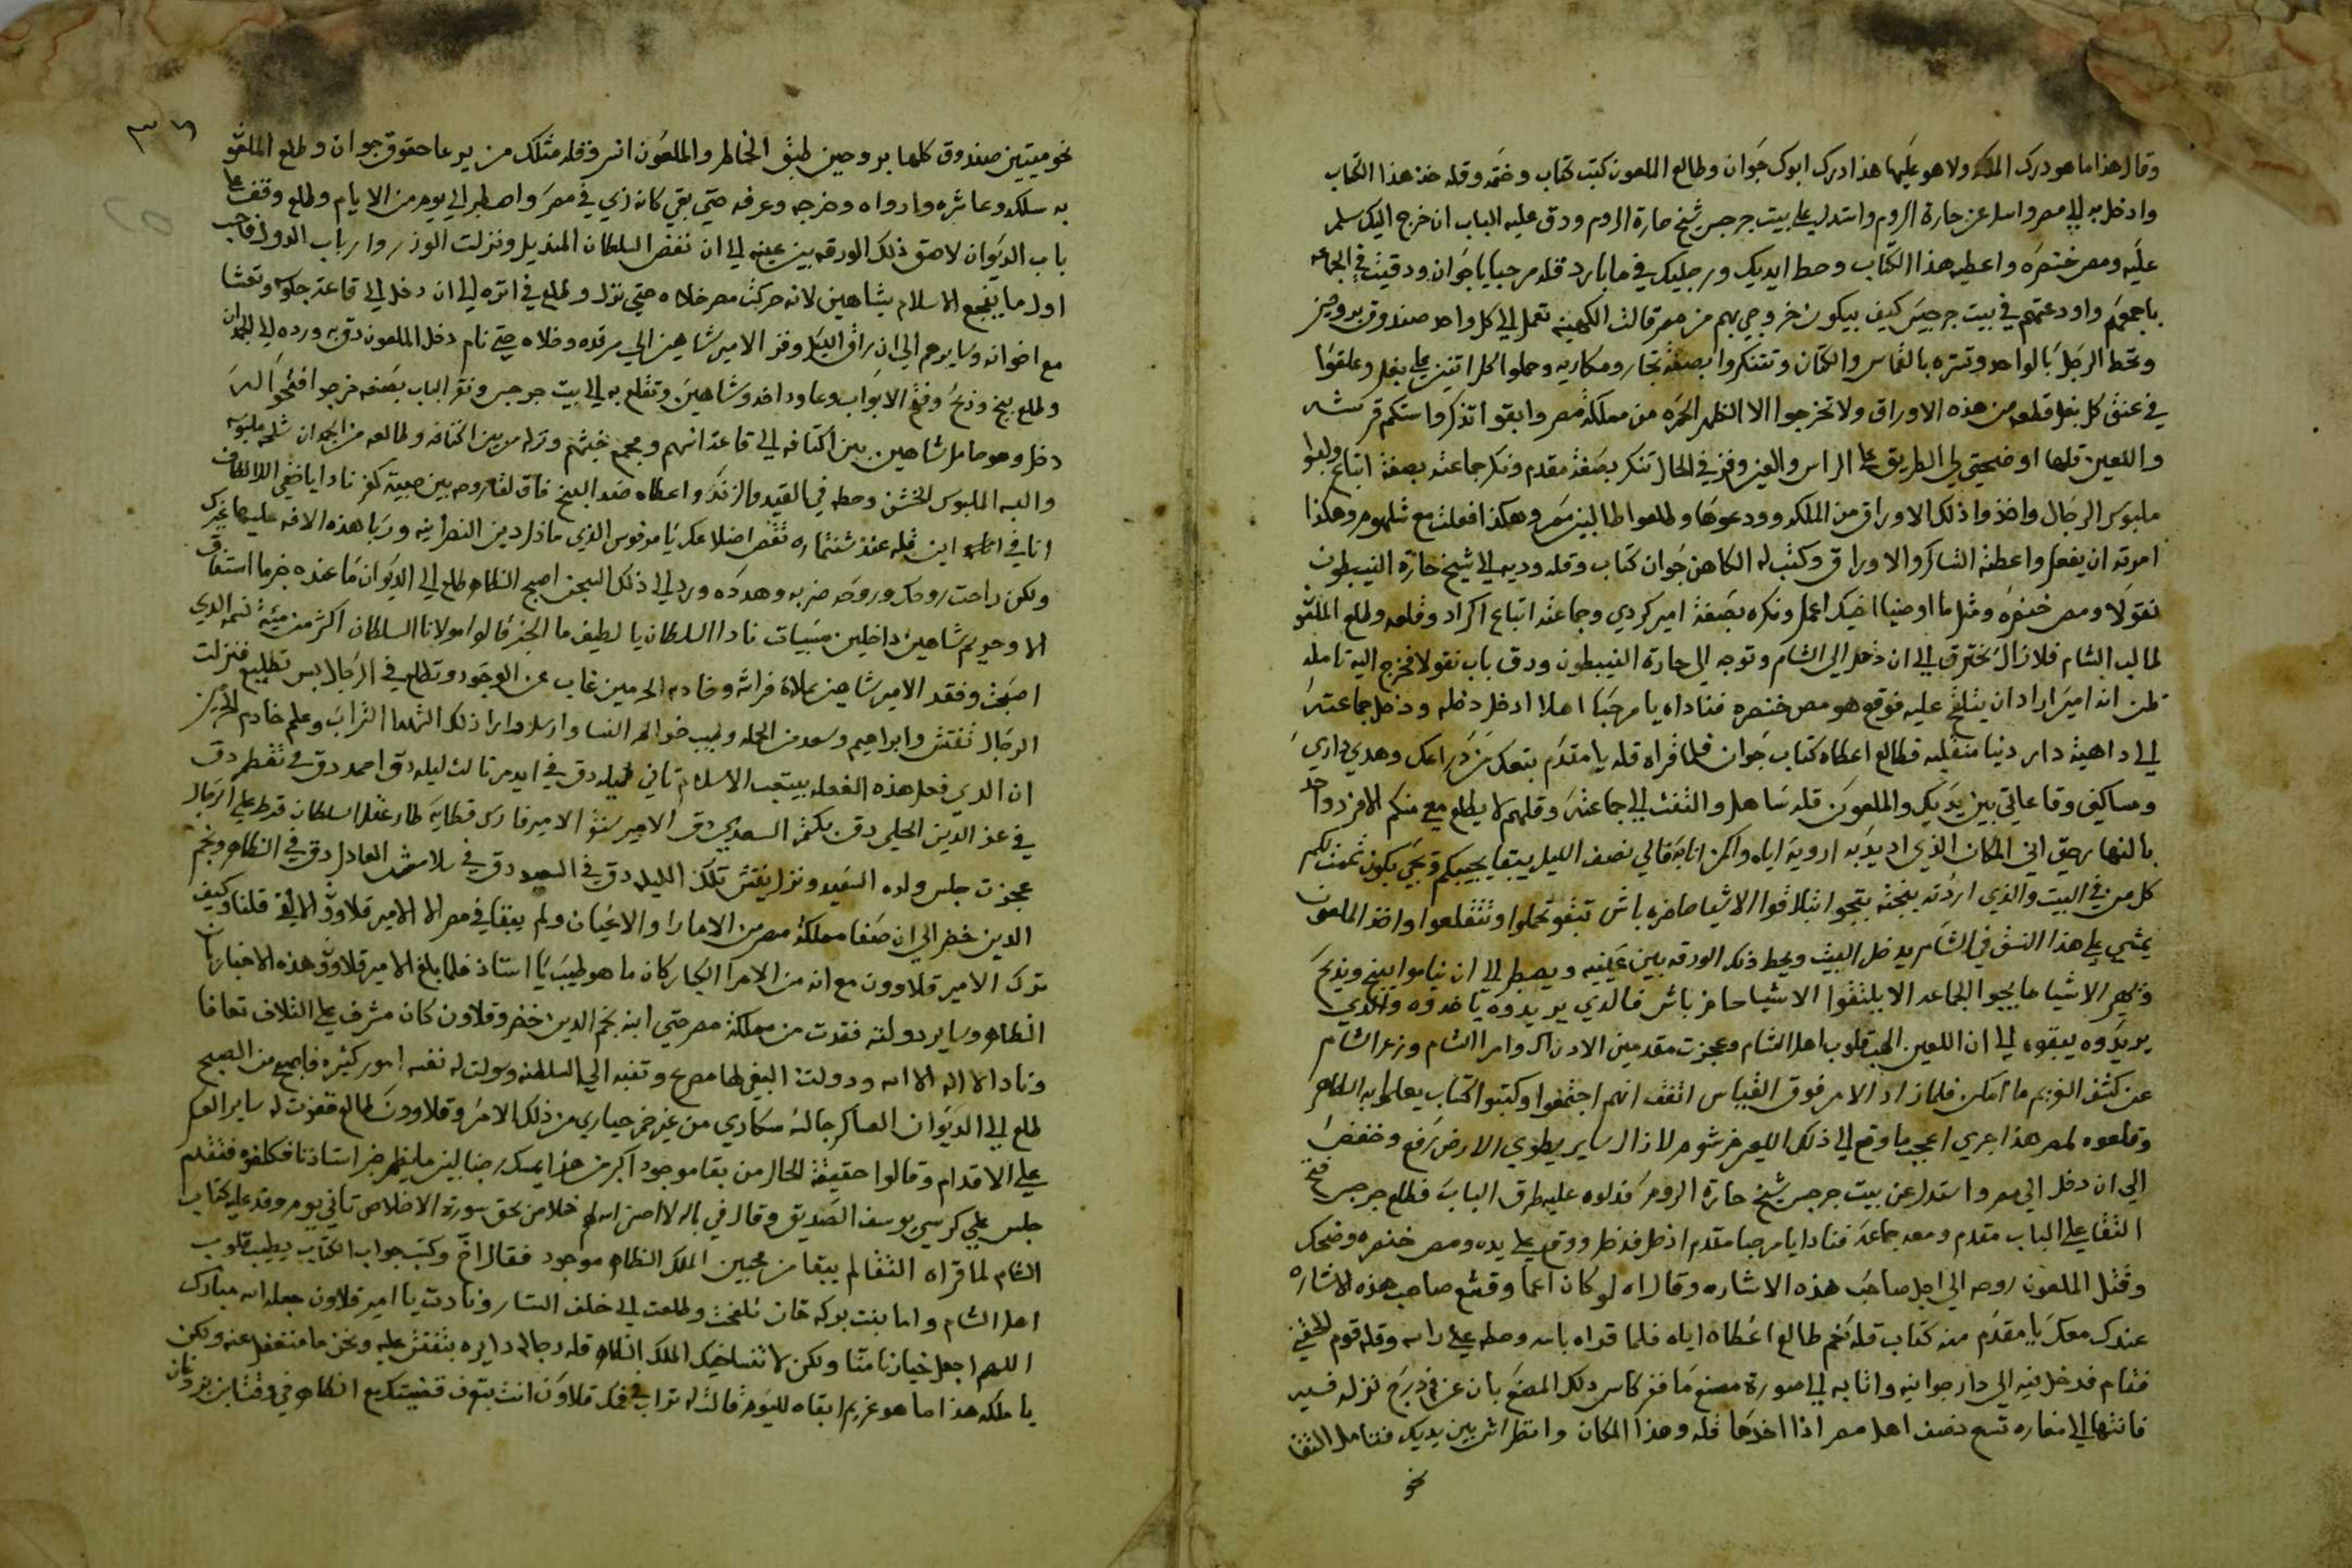 وقال هذا ما هو درك الملكه ولا هو عليها هذا درك ابوك جوان وطالع الملعون كتب كتاب وختمه وقله خذ هذا الكتاب
وادخل به الي مصر واسل عن حارة الروم واستدل علي بيت جرجس شيخ حارة الروم ودق عليه الباب ان خرج اليك سلم
عليه ومص خنصره واعطيه هذا الكتاب وحط ايديك ورجليك في ما بارد قله مرحبا يا جوان ودقيت في الجماعه
باجمعهم واودعتهم في بيت جرجيس كيف بيكون خروجي بهم من مصر قالت الكهينه تعمل الي كل واحد صندوق بروحين
وتحط الرجل بالواحد وتستره بالقماس والكتان وتتنكروا بصفة تجار ومكاريه وحملوا كل اتنين علي بغل وعلقوا
في عنق كل بغل قطعه من هذه الاوراق ولا تخرجوا الا الظهر الحمره من مملكة مصر وابقوا تذكروا ستكم قرمشه
واللعين قلها اوضحيتي لي الطريق علي الراس والعين وفز في الحال تنكر بصفة مقدم ونكر جماعته بصفة اتباع ولبسوا
ملبوس الرجال واخذوا ذلك الاوراق من الملكه وودعوها وطلعوا طالبين مصر وهكذا فعلت مع شلهوم وهكذا
امرته ان يفعل واعطته التساكر والاوراق وكتب له الكاهن جوان كتاب وقله وديه الي شيخ حارة النيبطون
نقولا ومص خنصره ومثل ما اوضيا اخيك اعمل ونكره بصفة امير كردي وجماعته اتباع اكراد وقلعه وطلع الملعون
طالب الشام فلا زال يخترق الي ان دخل الي الشام وتوجه الي حارة النيبطون ودق باب نقولا فخرج اليه تامله
ظن انه امير اراد ان يتلقح عليه فوقع هو مص خنصره فناداه يا مرحبا اهلا ادخل دخله ودخل جماعته
الي داهية دار دنيا منقلبه فطالع اعطاه كتاب جوان فلما قراه قله يا مقدم بتعك من دراعك وهدي داري
ومساكني وقاعاتي بين يديك والملعون قله تساهل والتفت الي جماعته وقلهم لا يطلع معي منكم الا فرد واحد
بالنهار حتي اني المكان الذي اريد به ارويه اياه ولكن انا بقالي نصف الليل يبقا يجيبكم وتجي بكون تمنت لكم
كل من في البيت والذي اردته بنجته بتجوا بتلاقوا الاشيا حاضره باش تبقوا تحملوا وتتقلعوا واخذ الملعون
يمشي علي هذا النسق في الشام يدخل البيت ويحط ذلك الورقه بين عينيه ويصطبر الي ان يناموا يبنج ويذبح
وتصير الاشيا ما يجوا الجماعه الا يلتقوا الاشيا حاضر باش فالذي يريدوه ياخدوه والذي
يريدوه يبقوه الي ان اللعين الهب قلوب اهل الشام وعجزت مقدمين الادراك وامرا الشام وزعر الشام
عن كشف الغريم ما امكن فلما زاد الامر فوق القياس اتفق انهم اجتمعوا وكتبوا كتاب يعلموا به الظاهر
وقلعوه لمصر هذا جري اعجب ما وقع الي ذلك الليص خرشوم لا زال ساير يطوي الارض رفع وخفض
الي ان دخل الي مصر واستدل عن بيت جرجس شيخ حارة الروم فدلوه عليه طرق الباب فطلع جرجس فتح
التقا علي الباب مقدم ومعه جماعه فنادا يا مرحبا مقدم ادخل فدخل ووقع علي يده ومص خنصره وضحك
وقتل الملعون روحه الي اجل صاحب هذه الاشاره وقال اه لو كان اعما وقشع صاحب هذه الاشاره
عندك معك يا مقدم منه كتاب قله نعم طالع اعطاه اياه فلما قراه باسه وحطه علي راسه وقله قوم الحقني
فقام فدخل فيه الي دار جوانيه واتا به الي صورة مصنع ما فز كاس ذلك المصنع بان عن درج نزله فسير
فانتها الي مغاره تسع نصف اهل مصر اذا اخدها قله وهذا المكان وانظر اش بين يديك فتامل التقا
نحو
٣٦
نحو ميتين صندوق كلها بروحين طبق الخاطر والملعون انسر وقله متلك من يرعا حقوق جوان وطلع الملعون
به سلكه وعاشره وارواه وخرجه وعرفه حتي بقي كانه ذي في مصر واصطبر الي يوم من الايام وطلع وقف علي
باب الديوان لاصق ذلك الورقه بين عينيه الي ان نفض السلطان المنديل ونزلت الوزر وارباب الدول فاحب
اول ما يفجع الاسلام بشاهين لانه حركت مصر خلاه حتي نزل وطلع في اتره الي ان دخل الي قاعة جلوسه وتعشا
مع اخوانه وسايرهم الي ان راق الليل وفز الامير شاهين الي مرقده وخلاه حتي نام دخل الملعون دق به ورده الي الجدران
وطلع بنج وذبح وفتح الابواب وعاود اخد وشاهين وتقلع به الي بيت جرجس ونقر الباب بصنعه خرجوا افتحوا له
دخل وهو حامل شاهين بين اكتافه الي قاعة انهم ومجمع خبثهم ونزله من بين اكتافه وطالعه من الجدان شلحه ملبوسه
والبسه الملبوس الخشن وحطه في القيد والزنكر واعطاه ضد البنج فاق لقا روحه بين صبية كفر نادا يا خفي الالطاف
انا في اين قله عند شنتماره نقض اضلاعك يا مرقوس الذي ماذل دين النصرانيه وربا هذه الافه عليها غيرك
ولكن راحت روحك وروحه ضربه وهدده ورد الي ذلك السجن اصبح الظاهر طلع الي الديوان ما عنده خبر ما استفاق
الا وحريم شاهين داخلين مسيبات نادا السلطان يا لطيف ما الخبر قالوا مولانا السلطان اكثر من مية نسمه الذي
اصبحت وفقد الامير شاهين بملاة فراشه وخادم الحرمين غاب عن الوجود وتطلع في الرجال بس تطلع فنزلت
الرجال تفتش وابراهيم وسعد من الجمله وطيب خواطر النسا وارسلوا وارا ذلك الشهدا التراب وعلم خادم الحرمين
ان الذي فعل هذه الفعله بيتعب الاسلام تاني ليله دق في ايدمر تالت ليله دق احمد دق في تقطمر دق
في عز الدين الحلي دق بكتمر السعدي دق الامير سنقر الامير فارس قطايه طار عقل السلطان قرط علي الرجال
عجزت جلس ولده السعيد ونزل يفتش تلك الليله دق في السعيد دق في سلامش العادل دق في الظاهر ونجم
الدين خضر الي ان صفا مملكة مصر من الامارا والاعيان ولم يبقا في مصر الا الامير قلاوون الالفي قلنا وكيف
ترك الامير قلاوون مع انه من الامرا الكبار كان ما هو طيب يا استاذ فلما بلغ الامير قلاوون هذه الاخبار بان
الظاهر وساير دولته فقدت من مملكة مصر حتي ابنه نجم الدين خضر وقلاون كان مشرف علي التلاف تعافا
ونادا لا اله الا الله ودولت البغي لها مصرع وتنبه الي السلطنه وسولت له نفسه امور كثيره فاصبح من الصبح
طلع الي الديوان العساكر جالسه سكاري من غير خمر حياري من ذلك الامر وقلاوون طالع قفزت له ساير العسكر
علي الاقدام وقالوا حقيقة الحال من بقا موجود اكبر من هذا يمسك رضنا لبين ما يظهر خبر استاذنا فكلفوه فتقدم
جلس علي كرسي يوسف الصديق وقال في باله لا احضر الله لهم خلاص بحق سورة الاخلاص تاني يوم وفد عليه كتاب
الشام لما قراه التقا لم يبقا من محبين الملك الظاهر موجود فقال اخ وكتب جواب الكتاب يطيب قلوب
اهل الشام واما بنت بركه خان تلفحت وطلعت الي خلف الستار ونادت يا امير قلاون جعله الله مبارك
اللهم اجعل خيارنا منا ولكن لا تنسا خيك الملك الظاهر قله رجالي دايره بتفتش عليه ونحن ما منتغفل عنه ولكن
يا ملكه هذا ما هو غريم ابقاه لليوم قالت له تراب في فمك قلاون انت بتعرف قضيتك مع الظاهر في وقتها بن بزوفان